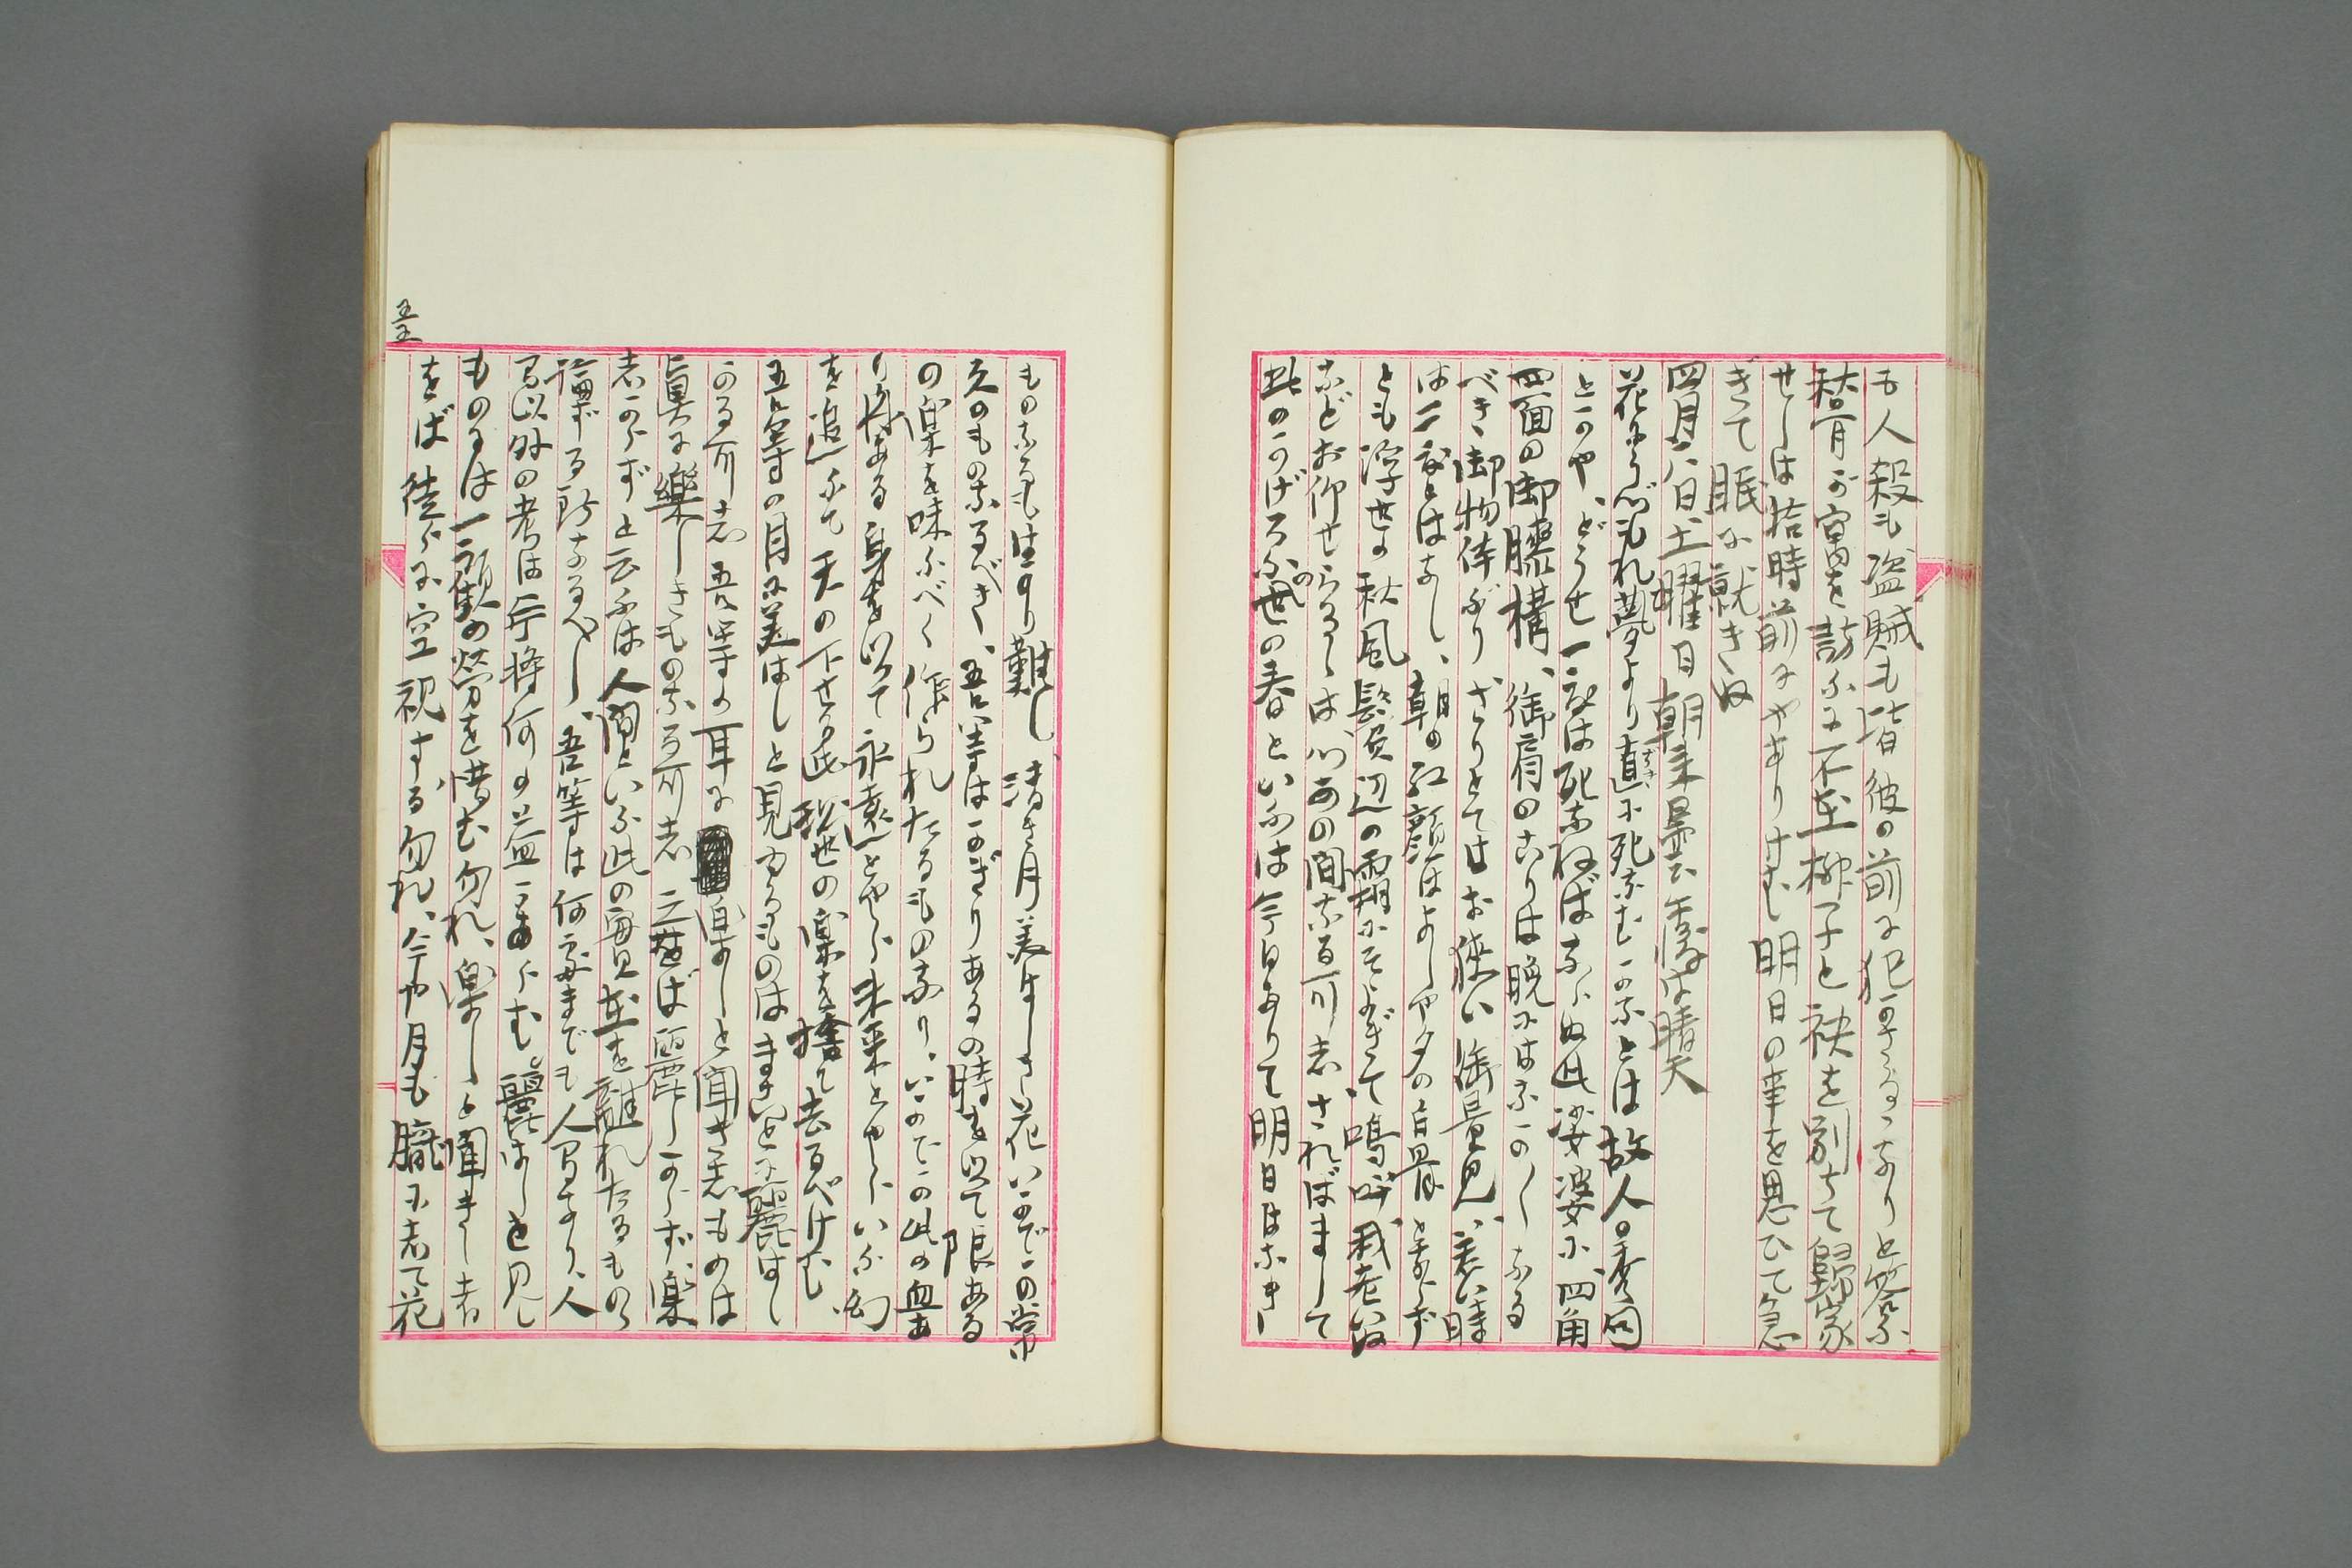 も人殺も盗賊も皆彼の前に犯さるゝなりと答ふ
秋骨の寓を訪ふに不在柳子と袂を別ちて歸家
せしは拾時前にやありけむ明日の幸を思ひて急
ぎて眠に就きぬ
四月八日土曜日朝来曇天午後は晴天
花にうづもれ夢より直に死なむかなとは故人の秀句
とかや、どうせ一度は死なねばならぬ此娑婆に、四角
四面の御膝構、御肩のこりは晩にはなかしなる
べき御物体ぶりさりとてはお狭い御量見、若い時
は二度とはなし、朝の紅顔はよしや夕の白骨とならず
とも浮世の秋風鬢辺の霜にそよぎて、嗚呼我老いぬ
などお仰せらるゝは、いかの間なる可しさればまして
此のかげろふの世の春といふは今日ありて明日はなき
ものなるも生り難し、清き月美はしき花いかでかの常
久のものなるべき、吾等はかぎりあるの時を以て限ある
の楽を味ふべく作られたるものなり、いかでかの此の血あ
り涙ある身を以て永遠とやら未来とやらいふ幻
を追ふて天の下せる此現世の楽を捨て去るべけむ
吾等の目に美はしと見ゆるものはまことに麗はし
かる可し吾等の耳に楽しと聞き志ものは
眞に樂しきものなる可し之をば麗しからず、楽
志からずと云ふは人間といふ此の実在を離れたるものゝ
論ずる所なるべし、吾等は何処までも人間なり、人
間以外の考は行将何の益かあらむ。麗はしと見し
ものには一顧の労を惜む勿れ、楽しと聞きし者
をば徒らに空視する勿れ、今や月も朧に志て花